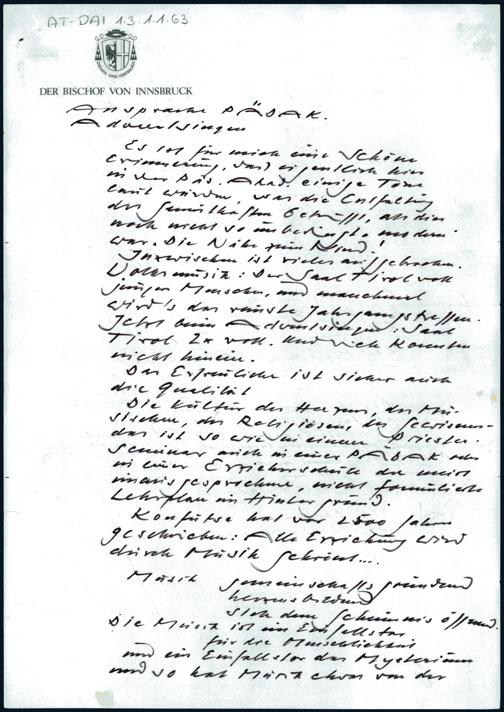 AT-DAI 1.3.1.1.63
DER BISCHOF VON INNSBRUCK
Ansprache PÄDAK.
Adventsingen
Es ist für mich eine schöne
Erinnerung, daß eigentlich hier
in der Päd. Akad. einige Töne
laut wurden, was die Entfaltung
des Gemüthaften betrifft, als dies
noch nicht so unbedingt modern
war. Die Nähe zum Kind!
Inzwischen ist vieles aufgebrochen.
Volksmusik: Der Saal Tirol voll
junger Menschen, und manchmal
wird's das reinste Jahrgangstreffen.
Jetzt beim Adventsingen: Saal
Tirol 2x voll. Und viele konnten
nicht hinein.
Das Erfreuliche ist sicher auch
die Qualität
Die Kultur des Herzens, des Mu-
sischen, des Religiösen, des Gewissens-
das ist so wie in einem Priester-
seminar auch in einer PÄDAK oder
in einer Erzieherschule der meist
unausgesprochene, nicht formulierte
Lehrplan im Hintergrund.
Konfutse hat vor 2500 Jahren
geschrieben: Alle Erziehung wird
durch Musik gekrönt...
Musik gemeinschaftsgründend
herzensbildend
sich dem Geheimnis öffnend.
Die Musik ist ein Einfallstor
für die Menschlichkeit
und ein Einfallstor des Mysteriums
und so hat Musik etwas von der